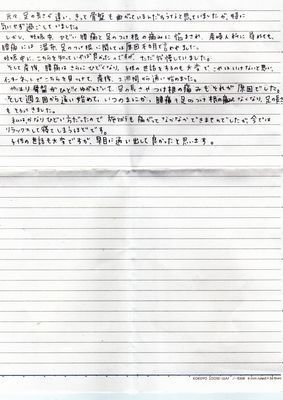 元々、足の長さが違い、きっと骨盤も曲がっているんだろうなと思っていましたが、特に
気にせず過ごしていました。
しかし、妊娠中 ひどい腰痛と足のつけ根の痛みに悩まされ、産婦人科に尋ねても、
腰痛には湿布、足のつけ根に関しては原因不明と言われました。
妊娠中に、こちらを知っていれば良かったのですが、ただただ我慢していました。
そして産後、腰痛はさらにひどくなり、子供の世話をするのも大変で これはいけないと思い、
インターネットでこちらを見つけて、産後、2週間から通い始めました。
やはり骨盤がひどくゆがんでいて、足の長さやつけ根の痛みもそれが原因でした。
そして週2回から通い始めて、いつのまにか、腰痛も足のつけ根の痛みもなくなり、足の長さ
もそろいました。
まわりがかなりひどい方だったので 施術も痛がってなかなかできませんでしたが、今では
リラックスして寝てしまうほどです。
子供の世話も大変ですが、早目に通い出して良かったと思います。
KOKUYO LOOSE-LEAF